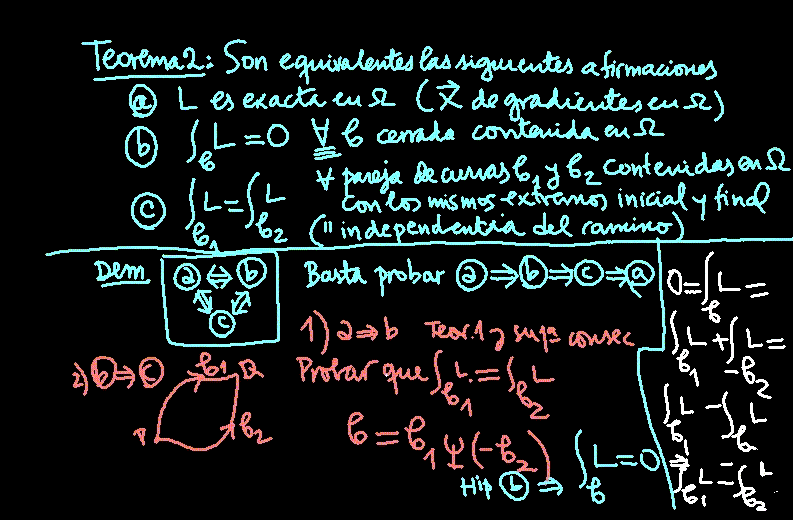 Teorema 2: Son equivalentes las siguientes afirmaciones
ⓐ L es exacta en Ω (X⃗ de gradientes en Ω)
ⓑ ∫_𝒞 L = 0 ∀ 𝒞 cerrada contenida en Ω
ⓒ ∫_𝒞₁ L = ∫_𝒞₂ L ∀ pareja de curvas 𝒞₁ y 𝒞₂ contenidas en Ω
con los mismos extremos inicial y final
(" independentria del ramino)
Dem ⓐ ⇔ ⓑ ⓒ Basta probar ⓐ ⇒ ⓑ ⇒ ⓒ ⇒ ⓐ
1) a ⇒ b Teor. 1 y su 1ª consec
2) ⓑ ⇒ ⓒ P 𝒞₁ Q 𝒞₂ Probar que ∫_𝒞₁ L = ∫_𝒞₂ L
𝒞 = 𝒞₁ Ψ (-𝒞₂)
Hip ⓑ ⇒ ∫_𝒞 L = 0
0 = ∫_𝒞 L =
∫_𝒞₁ L + ∫_-𝒞₂ L =
∫_𝒞₁ L - ∫_𝒞₂ L
⇒
∫_𝒞₁ L = ∫_𝒞₂ L